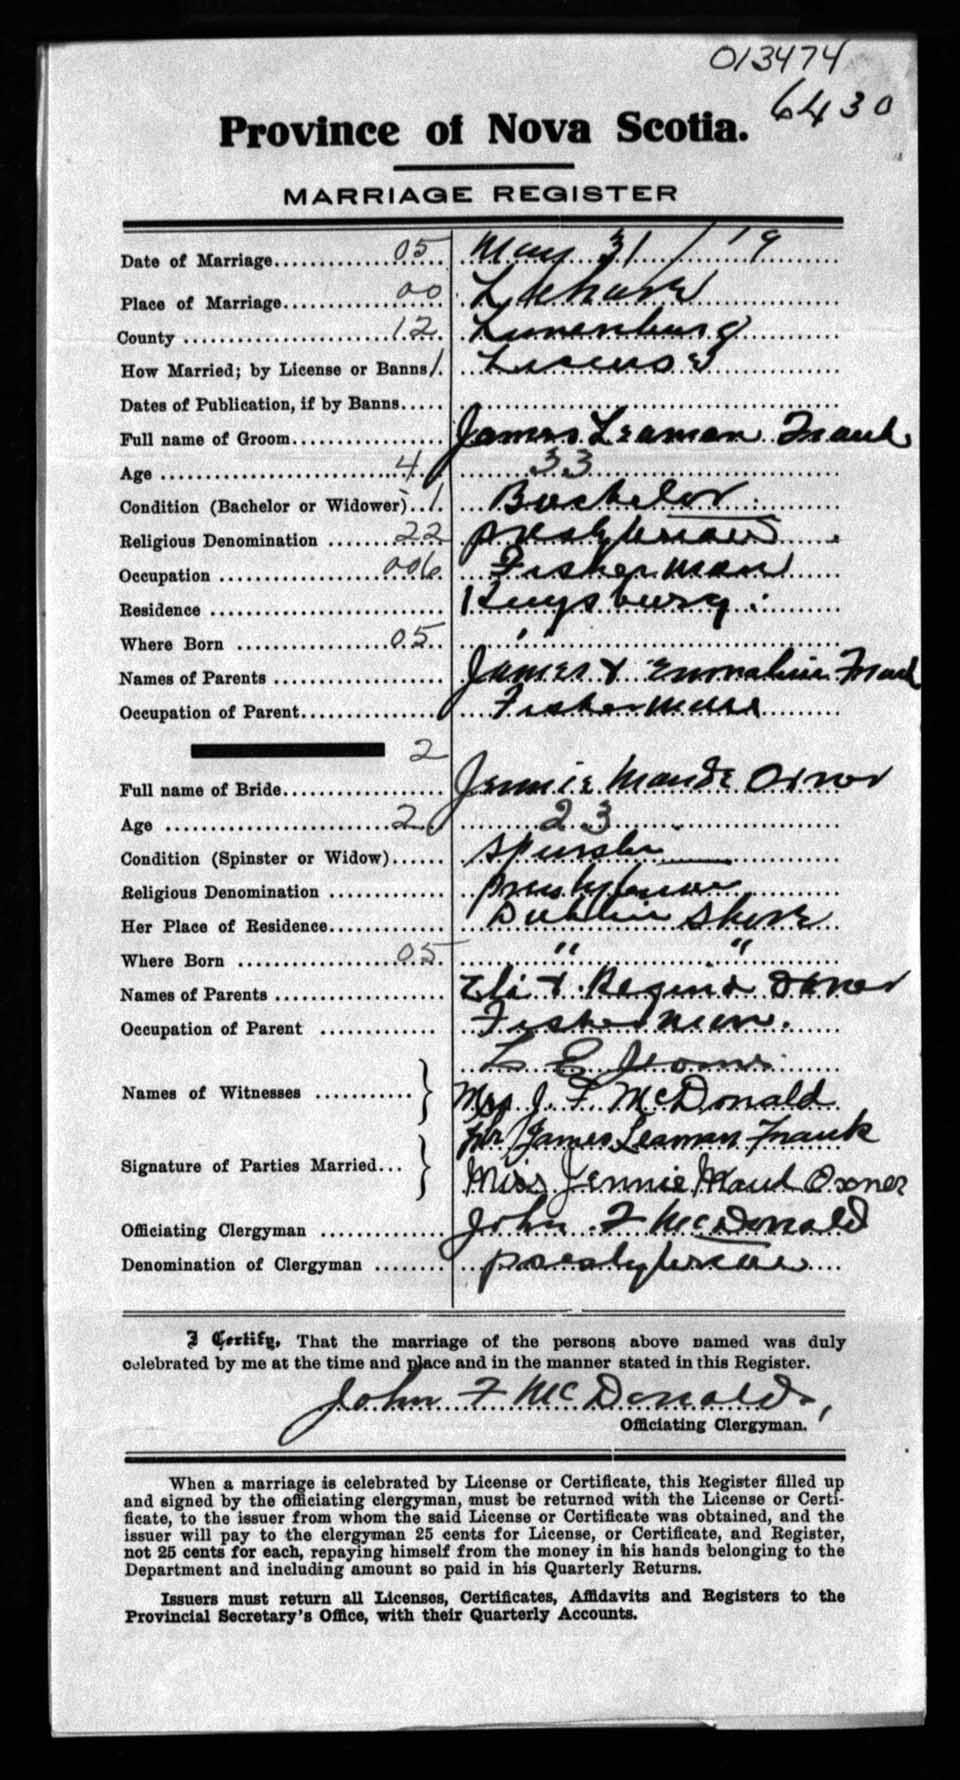 013474
6430
Province of Nova Scotia.
MARRIAGE REGISTER
Date of Marriage 05 May 31 / 19
Place of Marriage 00 LaHave
County 12 Lunenburg
How Married; by License or Banns 1 License
Dates of Publication, if by Banns
Full name of Groom James Leaman Frank
Age 4 33
Condition (Bachelor or Widower) 1 Bachelor
Religious Denomination 22 Presbyterian
Occupation 006 Fisherman
Residence Kingsburg
Where Born 05 " "
Names of Parents James & Frank
Occupation of Parent Fisherman
2
Full name of Bride Jennie Maude Oxner
Age 2 23
Condition (Spinster or Widow) Spinster
Religious Denomination Presbyterian
Her Place of Residence Dublin Shore
Where Born 05 " "
Names of Parents Eli & Oxner
Occupation of Parent Fisherman.
L E
Names of Witnesses
Mrs J. F. McDonald
Mr James Leaman Frank
Signature of Parties Married
Miss Jennie Maud Oxner
Officiating Clergyman John F McDonald
Denomination of Clergyman Presbyterian
I Certify, That the marriage of the persons above named was duly
celebrated by me at the time and place and in the manner stated in this Register.
John F McDonald,
Officiating Clergyman.
When a marriage is celebrated by License or Certificate, this Register filled up
and signed by the officiating clergyman, must be returned with the License or Certi-
ficate, to the issuer from whom the said License or Certificate was obtained, and the
issuer will pay to the clergyman 25 cents for License, or Certificate, and Register,
not 25 cents for each, repaying himself from the money in his hands belonging to the
Department and including amount so paid in his Quarterly Returns.
Issuers must return all Licenses, Certificates, Affidavits and Registers to the
Provincial Secretary's Office, with their Quarterly Accounts.